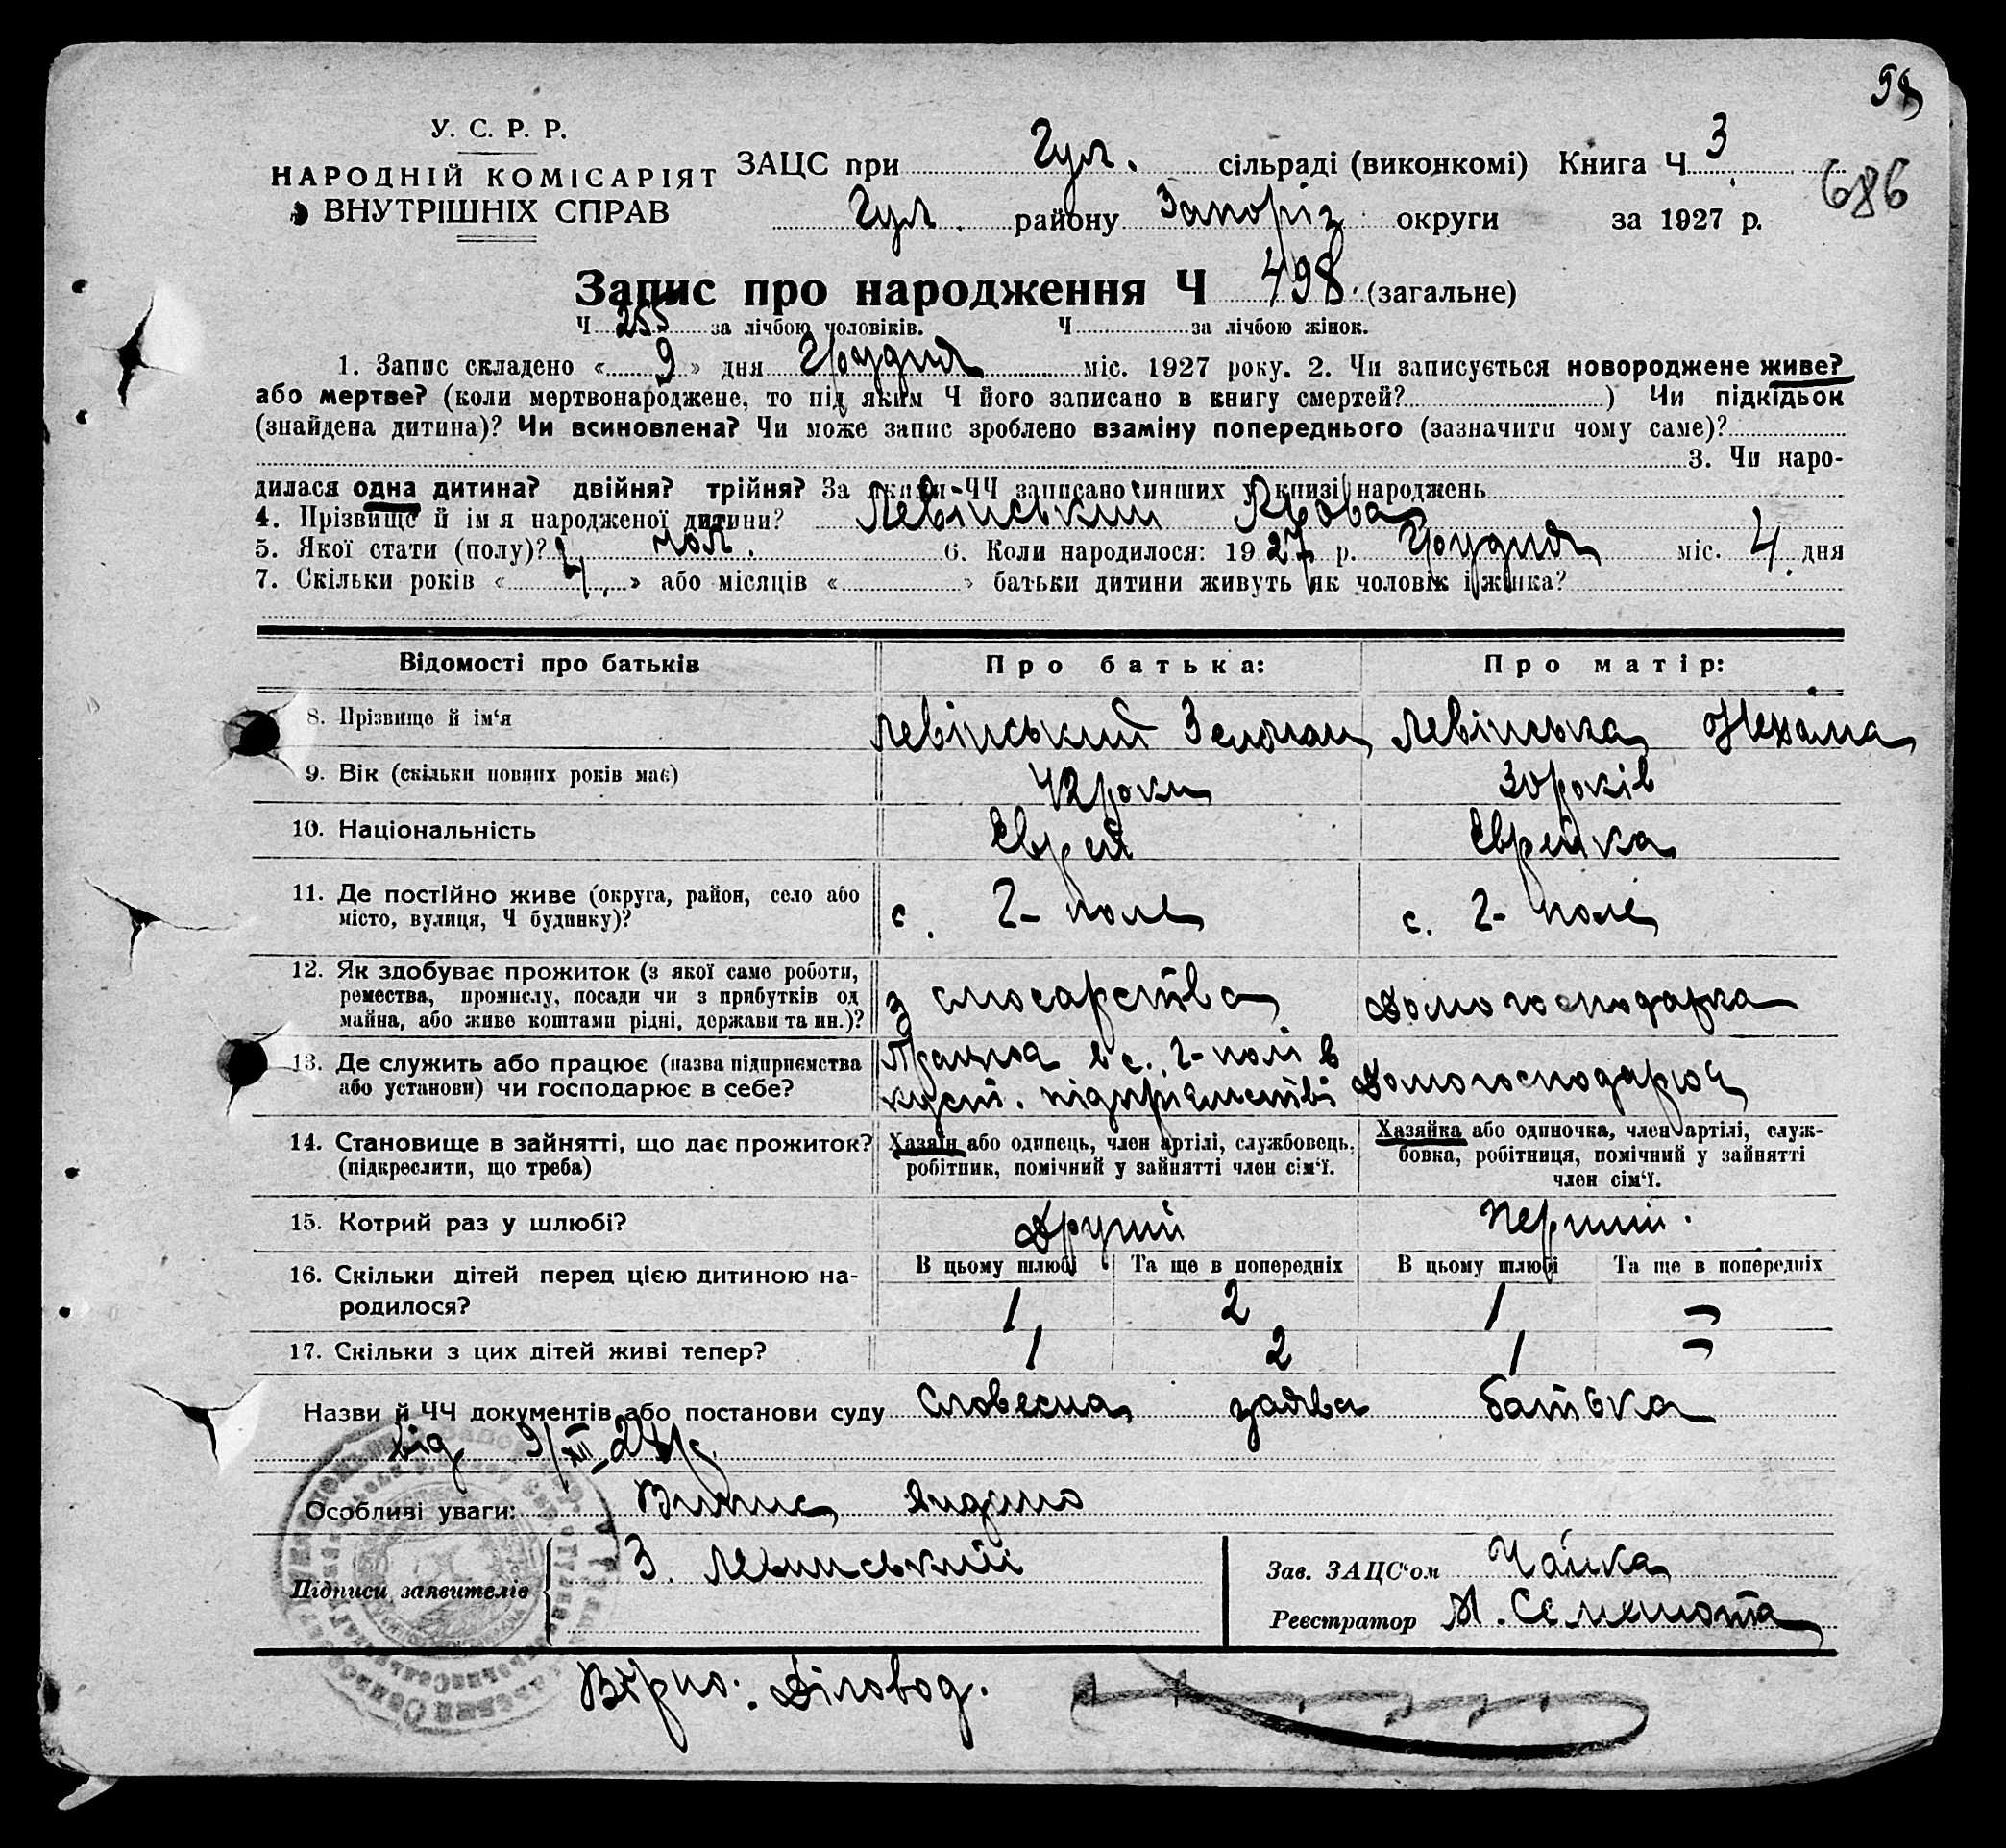 98
У. С. Р. Р.
НАРОДНІЙ КОМІСАРІЯТ
ВНУТРІШНІХ СПРАВ
ЗАЦС при Гул. сільраді (виконкомі) Книга Ч 3
686
Гул. району Запоріз. округи за 1927 р.
Запис про народження Ч 498 (загальне)
Ч 255 за лічбою чоловіків. Ч за лічбою жінок.
1. Запис складено « 9 » дня Грудня міс. 1927 року. 2. Чи записується новороджене живе?
або мертве? (коли мертвонароджене, то під яким Ч його записано в книгу смертей? ) Чи підкідьок
(знайдена дитина)? Чи всиновлена? Чи може запис зроблено взаміну попереднього (зазначити чому саме)?
3. Чи наро-
дилася одна дитина? двійня? трійня? За якими ЧЧ записано инших у книзі народжень
4. Прізвище й ім я народженої дитини? Левінський
5. Якої стати (полу)? чол. 6. Коли народилося: 1927 р. Грудня міс. 4 дня
7. Скільки років « 4 » або місяців « » батьки дитини живуть як чоловік і жінка?
Відомості про батьків Про батька: Про матір:
8. Прізвище й ім‘я Левінський Зельман Левінська Нехама
9. Вік (скільки повних років має) 42 роки 30 років
10. Національність Єврей Єврейка
11. Де постійно живе (округа, район, село або с. Г-поле с. Г-поле
місто, вулиця, Ч будинку)?
12. Як здобуває прожиток (з якої само роботи, з слюсарства Домогосподарка
ремества, промислу, посади чи з прибутків од
майна, або живе коштами рідні, держави та ин.)?
13. Де служить або працює (назва підприємства Працює в с. Г-полі в Домогосподарює
або установи) чи господарює в себе? куст. підприємстві
14. Становище в зайнятті, що дає прожиток? Хазяїн або одинець, член артілі, службовець, Хазяйка або одиночка, член артілі, служ-
(підкреслити, що треба) робітник, помічний у зайнятті член сім‘ї. бовка, робітниця, помічний у зайнятті
член сім‘ї.
15. Котрий раз у шлюбі? Другий Перший.
16. Скільки дітей перед цією дитиною на- В цьому шлюбі Та ще в попередніх В цьому шлюбі Та ще в попередніх
родилося? 1 2 1 –
17. Скільки з цих дітей живі тепер? 1 2 1 –
Назви й ЧЧ документів або постанови суду Словесна заява батька
від 9/XII-27 р.
Особливі уваги: Випис видано
Підписи заявителів З. Левинський Зав. ЗАЦС‘ом Чайка
Реєстратор
Вірно: Діловод.